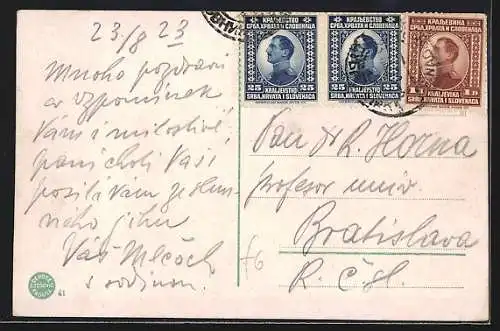 23/8 23
Mnoho pozdravů
a vzpomínek
Vám i milostivé
paní choti Vaší
posílá Vám ze slun-
ného jihu
Váš Mlčoch
s rodinou.
КРАЉЕВСТВО
СРБА, ХРВАТА И СЛОВЕНАЦА
25 25
KRALJEVSTVO
SRBA, HRVATA I SLOVENACA
КРАЉЕВСТВО
СРБА, ХРВАТА И СЛОВЕНАЦА
25 25
KRALJEVSTVO
SRBA, HRVATA I SLOVENACA
КРАЉЕВИНА
СРБА, ХРВАТА И СЛОВЕНАЦА
1
KRALJEVINA
SRBA, HRVATA I SLOVENACA
Pan Dr. R. Horna
profesor univ.
Bratislava
R. Čsl.
61